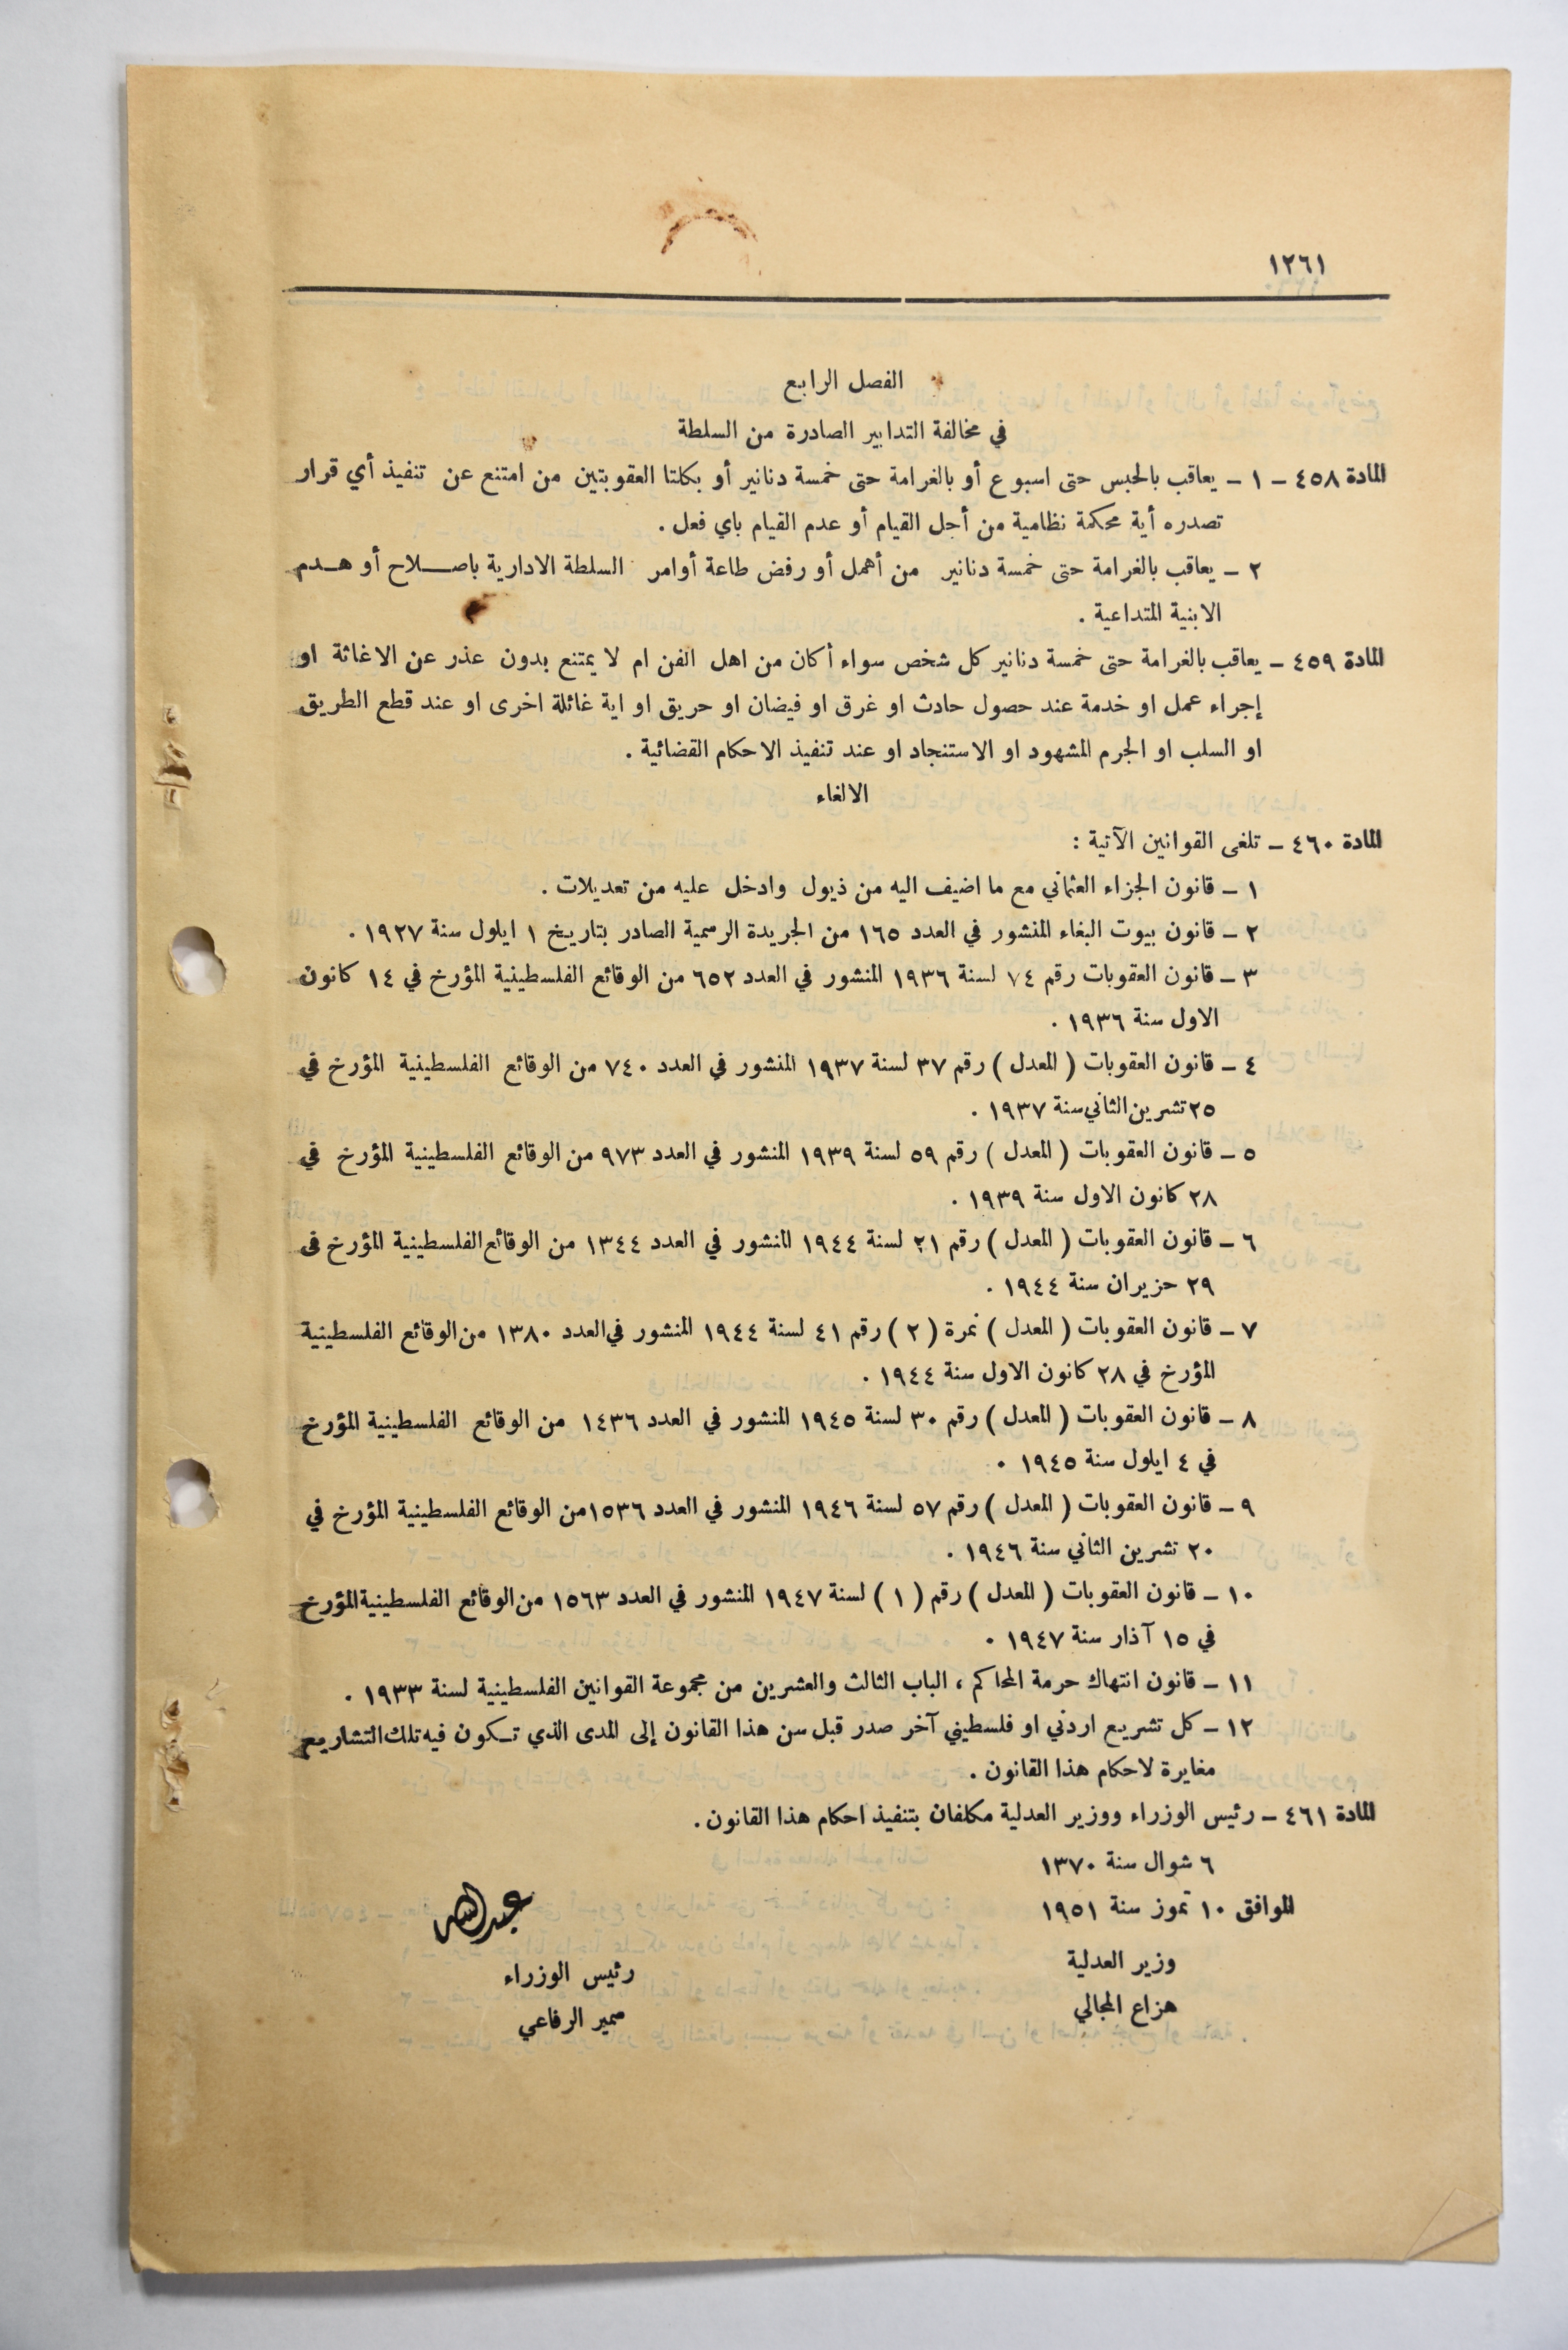 ١٢٦١
الفصل الرابع
في مخالفة التدابير الصادرة من السلطة
المادة ٤٥٨ – ١ – يعاقب بالحبس حتى اسبوع أو بالغرامة حتى خمسة دنانير أو بكلتا العقوبتين من امتنع عن تنفيذ أي قرار
تصدره أية محكمة نظامية من أجل القيام أو عدم القيام باي فعل .
٢ – يعاقب بالغرامة حتى خمسة دنانير من أهمل أو رفض طاعة أوامر السلطة الادارية باصلاح أو هدم
الابنية المتداعية .
المادة ٤٥٩ – يعاقب بالغرامة حتى خمسة دنانير كل شخص سواء أكان من اهل الفن ام لا يمتنع بدون عذر عن الاغاثة او
إجراء عمل او خدمة عند حصول حادث او غرق او فيضان او حريق او اية غائلة اخرى او عند قطع الطريق
او السلب او الجرم المشهود او الاستنجاد او عند تنفيذ الاحكام القضائية .
الالغاء
المادة ٤٦٠ – تلغى القوانين الآتية :
١ – قانون الجزاء العثماني مع ما اضيف اليه من ذيول وادخل عليه من تعديلات .
٢ – قانون بيوت البغاء المنشور في العدد ١٦٥ من الجريدة الرسمية الصادر بتاريخ ١ ايلول سنة ١٩٢٧ .
٣ – قانون العقوبات رقم ٧٤ لسنة ١٩٣٦ المنشور في العدد ٦٥٢ من الوقائع الفلسطينية المؤرخ في ١٤ كانون
الاول سنة ١٩٣٦ .
٤ – قانون العقوبات ( المعدل ) رقم ٣٧ لسنة ١٩٣٧ المنشور في العدد ٧٤٠ من الوقائع الفلسطينية المؤرخ في
٢٥ تشرين الثاني سنة ١٩٣٧ .
٥ – قانون العقوبات ( المعدل ) رقم ٥٩ لسنة ١٩٣٩ المنشور في العدد ٩٧٣ من الوقائع الفلسطينية المؤرخ في
٢٨ كانون الاول سنة ١٩٣٩ .
٦ – قانون العقوبات ( المعدل ) رقم ٢١ لسنة ١٩٤٤ المنشور في العدد ١٣٤٤ من الوقائع الفلسطينية المؤرخ في
٢٩ حزيران سنة ١٩٤٤ .
٧ – قانون العقوبات ( المعدل ) نمرة ( ٢ ) رقم ٤١ لسنة ١٩٤٤ المنشور في العدد ١٣٨٠ من الوقائع الفلسطينية
المؤرخ في ٢٨ كانون الاول سنة ١٩٤٤ .
٨ – قانون العقوبات ( المعدل ) رقم ٣٠ لسنة ١٩٤٥ المنشور في العدد ١٤٣٦ من الوقائع الفلسطينية المؤرخ
في ٤ ايلول سنة ١٩٤٥ .
٩ – قانون العقوبات ( المعدل ) رقم ٥٧ لسنة ١٩٤٦ المنشور في العدد ١٥٣٦ من الوقائع الفلسطينية المؤرخ في
٢٠ تشرين الثاني سنة ١٩٤٦ .
١٠ – قانون العقوبات ( المعدل ) رقم ( ١ ) لسنة ١٩٤٧ المنشور في العدد ١٥٦٣ من الوقائع الفلسطينية المؤرخ
في ١٥ آذار سنة ١٩٤٧ .
١١ – قانون انتهاك حرمة المحاكم ، الباب الثالث والعشرين من مجموعة القوانين الفلسطينية لسنة ١٩٣٣ .
١٢ – كل تشريع اردني او فلسطيني آخر صدر قبل سن هذا القانون إلى المدى الذي تكون فيه تلك التشاريع
مغايرة لاحكام هذا القانون .
المادة ٤٦١ – رئيس الوزراء ووزير العدلية مكلفان بتنفيذ احكام هذا القانون .
٦ شوال سنة ١٣٧٠
الموافق ١٠ تموز سنة ١٩٥١
عبدالله
وزير العدلية
رئيس الوزراء
هزاع المجالي
سمير الرفاعي